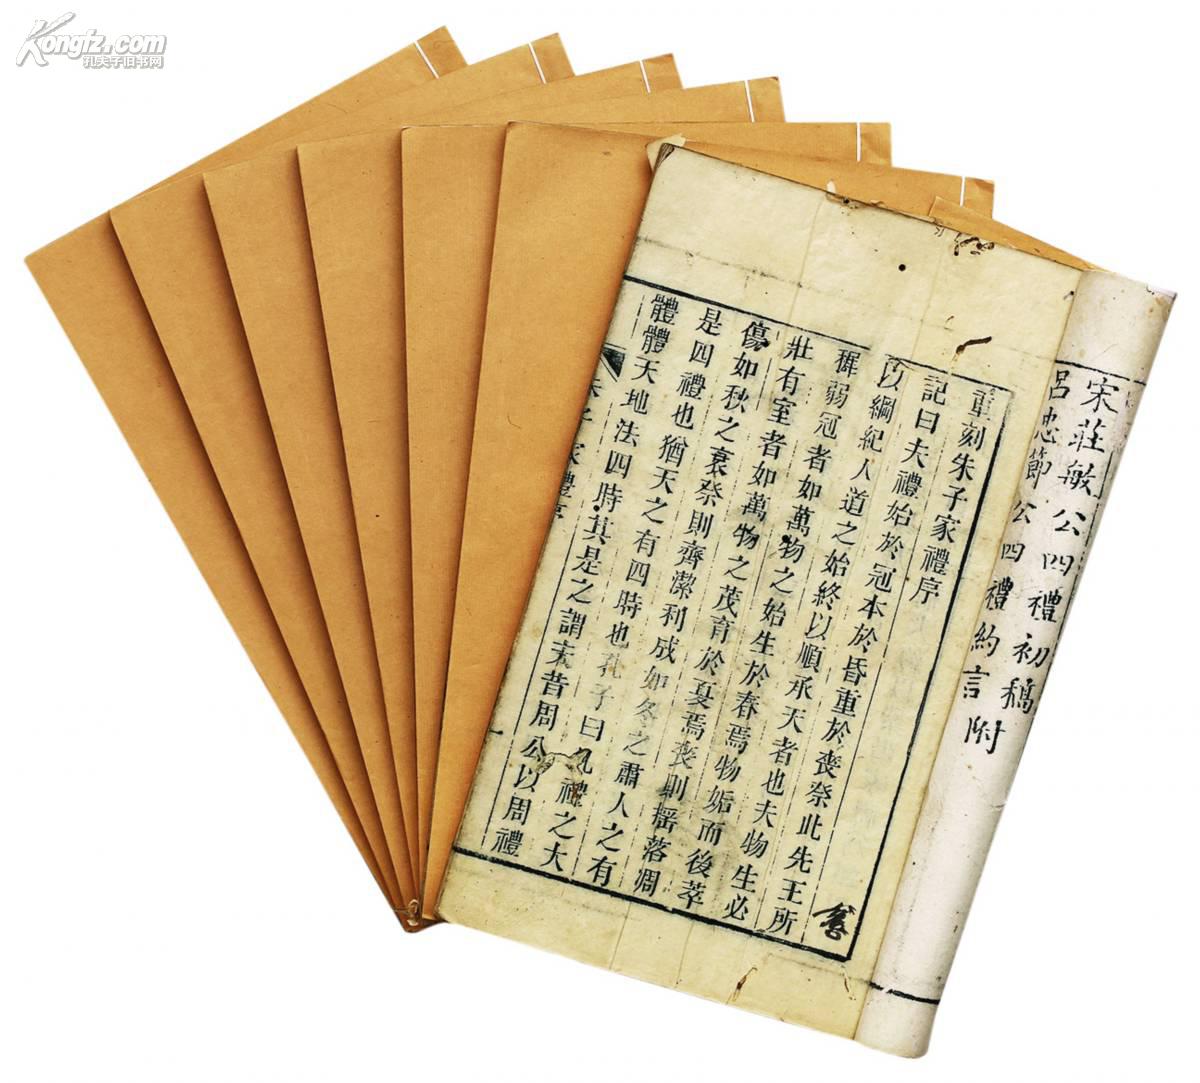 Kongfz.com
孔夫子旧书网
宋莊敏公四禮初稿
呂忠節公四禮約言附
重刻朱子家禮序
記曰夫禮始於冠本於昏重於喪祭此先王所
以綱紀人道之始終以順承天者也夫物生必
穉弱冠者如萬物之始生於春焉物姤而後萃
壯有室者如萬物之茂育於夏焉喪則揺落凋
傷如秋之衰祭則齊潔利成如冬之肅人之有
是四禮也猶天之有四時也孔子曰凡禮之大
體體天地法四時其是之謂昔周公以周禮